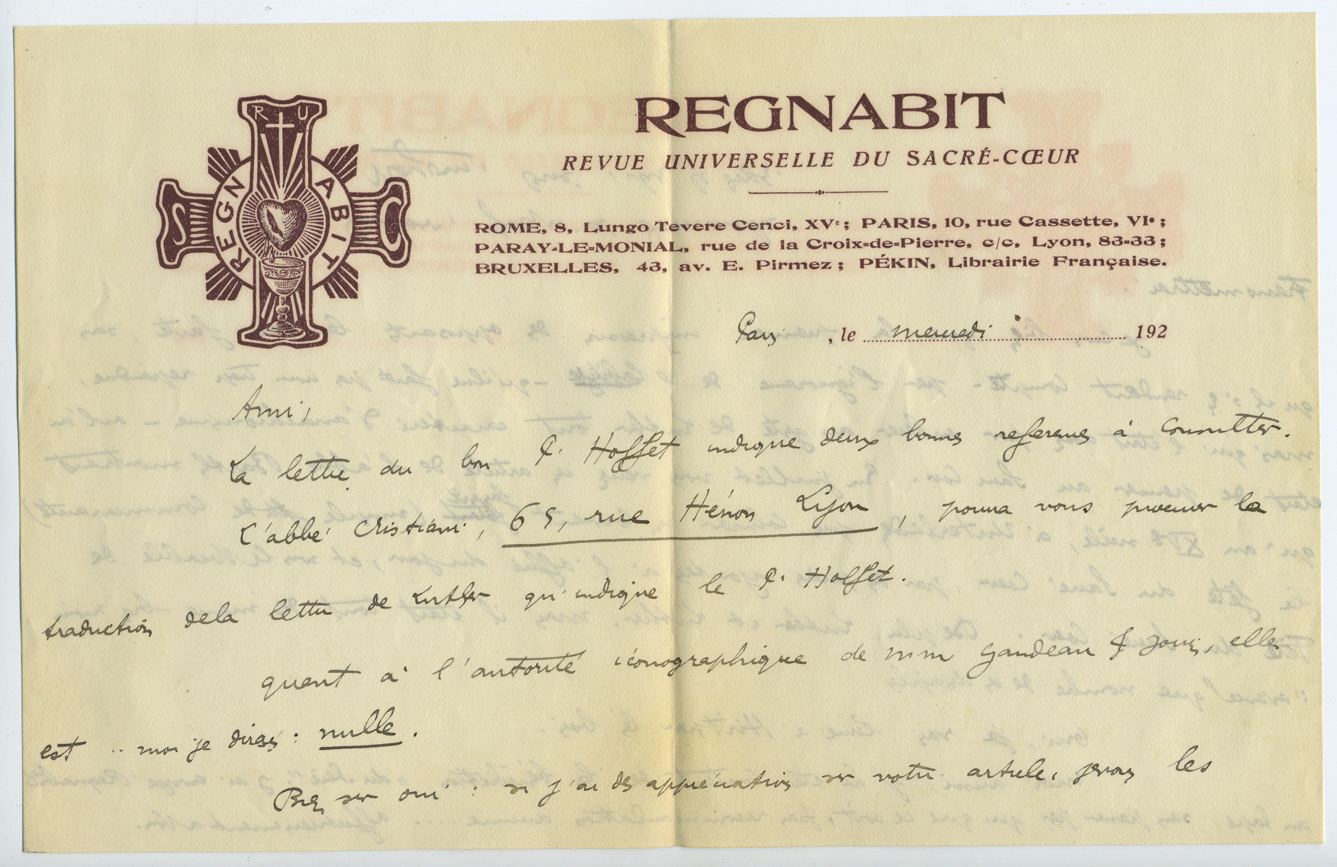 R U
REGNABIT
S C
REGNABIT
REVUE UNIVERSELLE DU SACRÉ-CŒUR
ROME, 8, Lungo Tevere Cenci, XVᵉ; PARIS, 10, rue Cassette, VIᵉ;
PARAY-LE-MONIAL, rue de la Croix-de-Pierre, c/c, Lyon, 83-33;
BRUXELLES, 43, av. E. Pirmez; PÉKIN, Librairie Française.
Paris, le mercredi 192
Ami,
La lettre du bon P. Hoffet indique deux bonnes references à consulter.
L'abbé Cristiani, 65, rue Hénon Lyon, pourra vous procurer la
traduction de la lettre de Luther qu'indique le P. Hoffet.
quant à l'autorité iconographique de mm Gaudeau & Jouin, elle
est .. moi je dirais : nulle.
Bien sur oui : si j'ai des appréciations sur votre article, je vous les